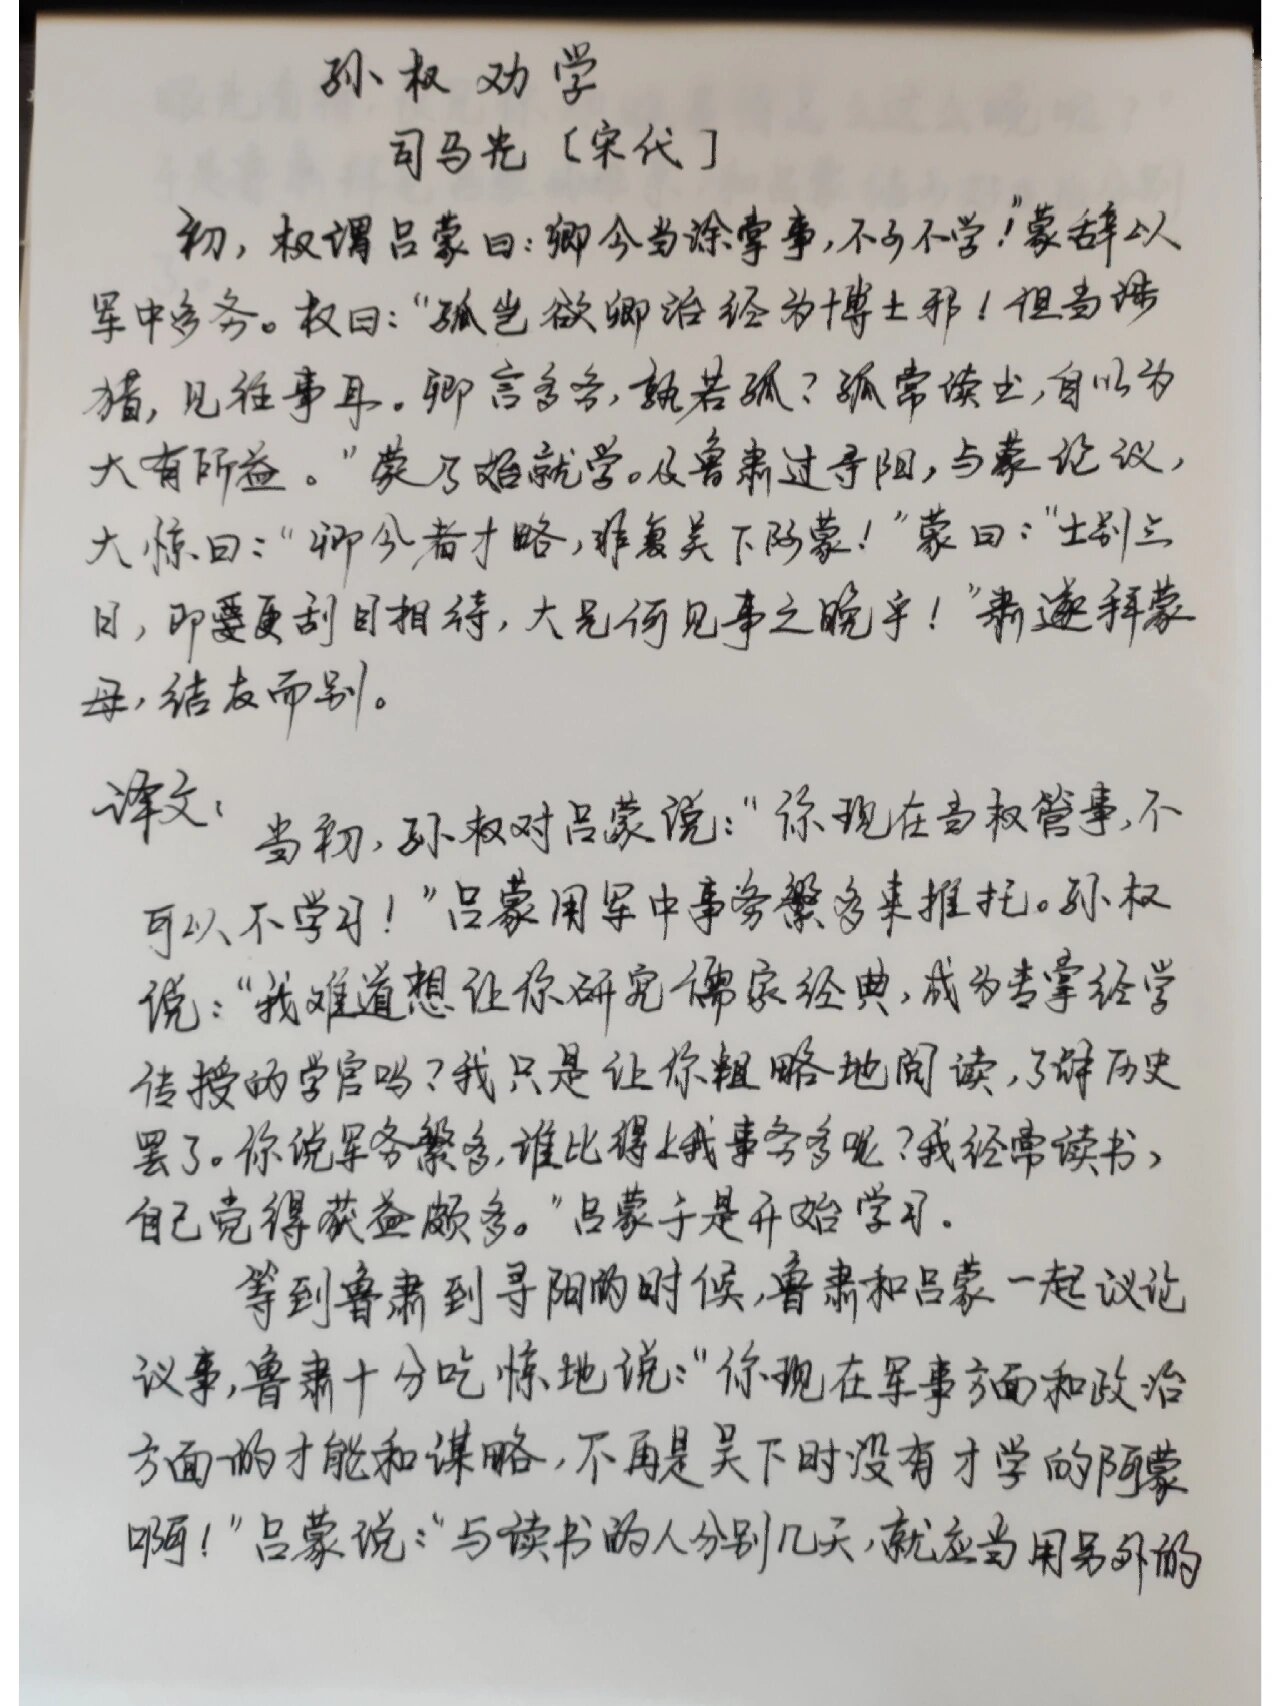 孙权劝学
司马光〔宋代〕
初，权谓吕蒙曰：卿今当涂掌事，不可不学！”蒙辞以
军中多务。权曰：“孤岂欲卿治经为博士邪！但当涉
猎，见往事耳。卿言多务，孰若孤？孤常读书，自以为
大有所益。”蒙乃始就学。及鲁肃过寻阳，与蒙论议，
大惊曰：“卿今者才略，非复吴下阿蒙！”蒙曰：“士别三
日，即更刮目相待，大兄何见事之晚乎！”肃遂拜蒙
母，结友而别。
译文：
当初，孙权对吕蒙说：“你现在当权管事，不
可以不学习！”吕蒙用军中事务繁多来推托。孙权
说：“我难道想让你研究儒家经典，成为专掌经学
传授的学官吗？我只是让你粗略地阅读，了解历史
罢了。你说军务繁多，谁比得上我事务多呢？我经常读书，
自己觉得获益颇多。”吕蒙于是开始学习．
等到鲁肃到寻阳的时候，鲁肃和吕蒙一起议论
议事，鲁肃十分吃惊地说：“你现在军事方面和政治
方面的才能和谋略，不再是吴下时没有才学的阿蒙
啊！”吕蒙说：“与读书的人分别几天，就应当用另外的